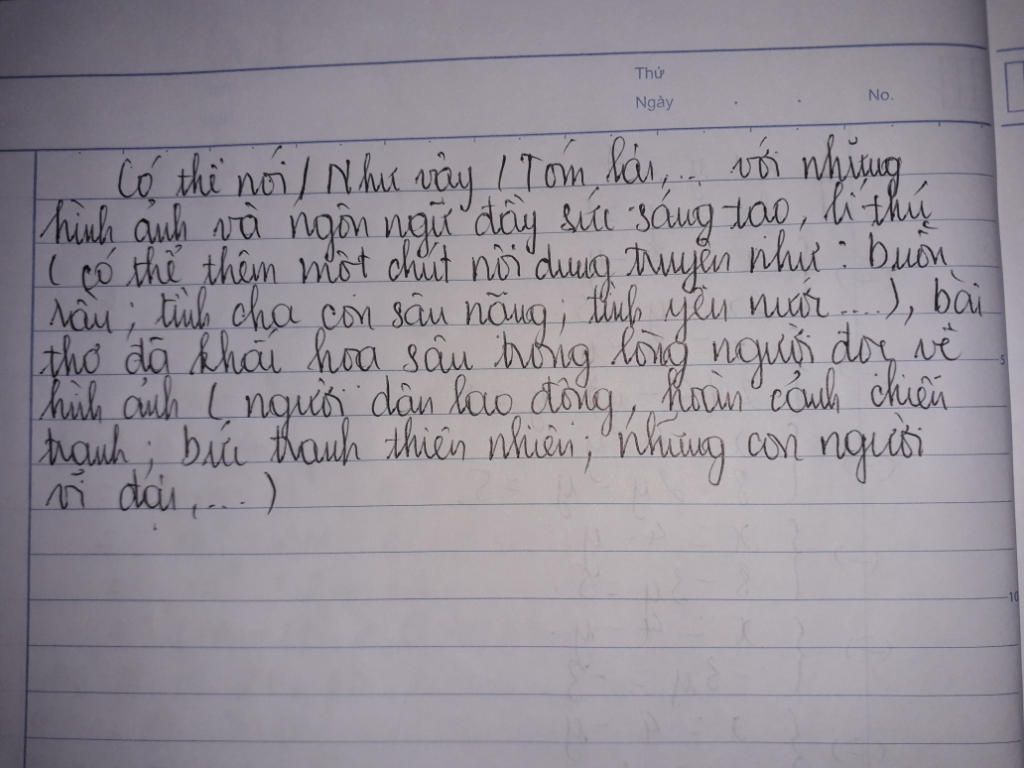 Thứ
Ngày . . No.
Có thể nói / Như vậy / Tóm lại,... với những
hình ảnh và ngôn ngữ đầy sức sáng tạo, lí thú
( có thể thêm một chút nội dung truyện như : buồn
rầu ; tình cha con sâu nặng ; tình yêu nước ....), bài
thơ đã khắc họa sâu trong lòng người đọc về
hình ảnh ( người dân lao động, hoàn cảnh chiến
tranh ; bức tranh thiên nhiên ; những con người
vĩ đại,... )
5
10